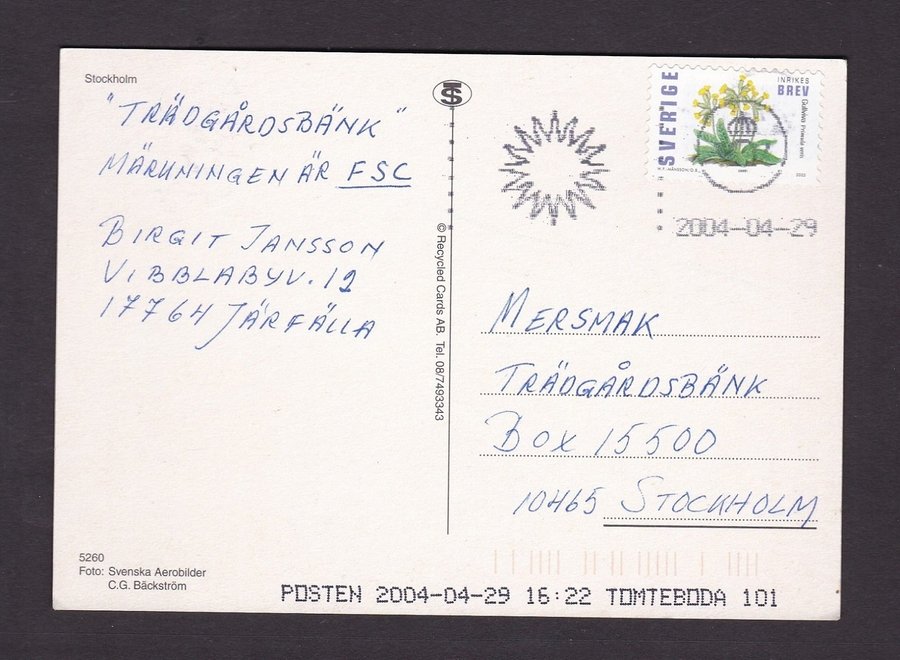 Stockholm
"TRÄDGÅRDSBÄNK"
MÄRKNINGEN ÄR FSC
BIRGIT JANSSON
VIBBLABYV. 12
17764 JÄRFÄLLA
5260
Foto: Svenska Aerobilder
C.G. Bäckström
© Recycled Cards AB. Tel. 08/7493343
SVERIGE
INRIKES
BREV
Gullviva Primula veris
2004-04-29
MERSMAK
TRÄDGÅRDSBÄNK
BOX 15500
10465 STOCKHOLM
POSTEN 2004-04-29 16:22 TOMTEBODA 101